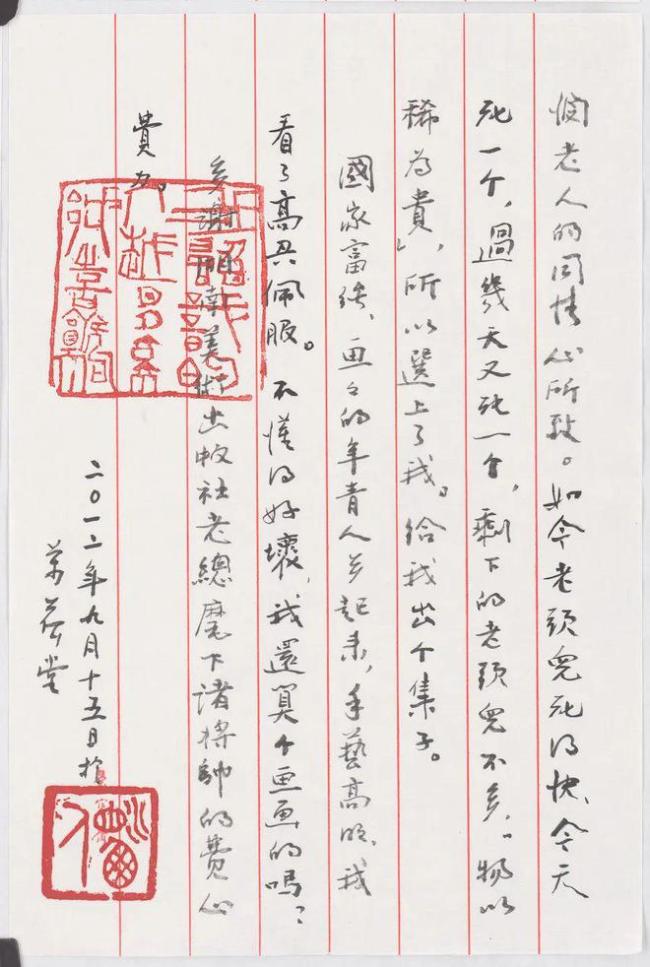 悯老人的同情心所致。如今老頭兒死得快、今天
死一个，過幾天又死一个，剩下的老頭兒不多。“物以
稀為貴”，所以選上了我。給我出个集子。
國家富强、画画的年青人多起来，手藝高明、我
看了高興佩服。不懂得好壞，我還算个画画的嗎？
多謝湖南美術出版社老總麾下諸将帥的費心
費力。
二〇一二年九月十五日於
萬荷堂